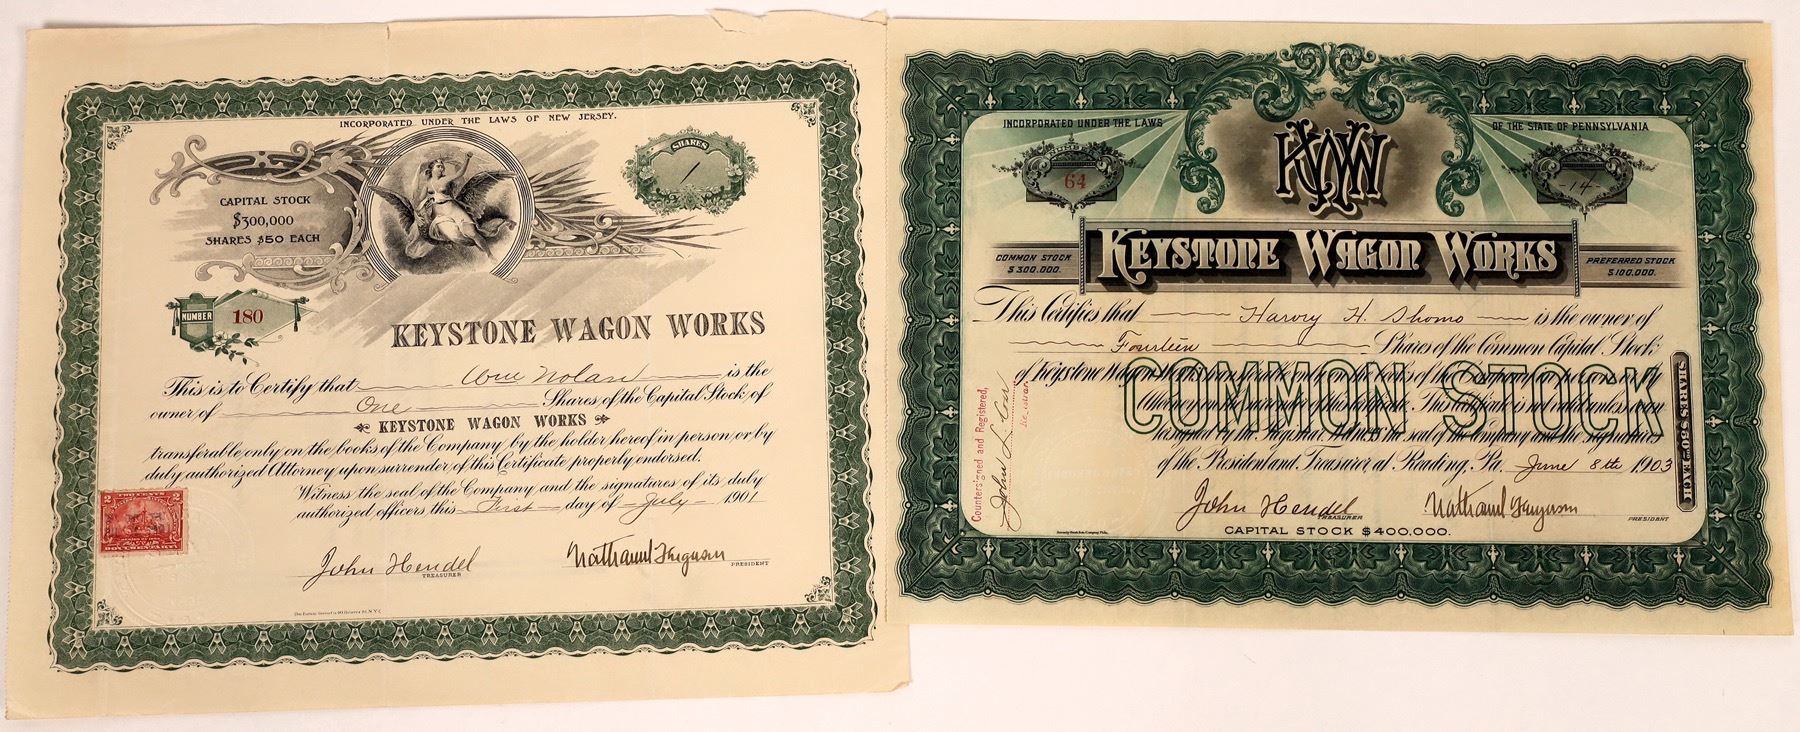 INCORPORATED UNDER THE LAWS OF NEW JERSEY.
CAPITAL STOCK
$300,000
SHARES $50 EACH
SHARES
1
NUMBER
180
KEYSTONE WAGON WORKS
This is to Certify that Wm Nolan is the
owner of One Shares of the Capital Stock of
KEYSTONE WAGON WORKS
transferable only on the books of the Company by the holder hereof in person or by
duly authorized Attorney upon surrender of this Certificate properly endorsed.
Witness the seal of the Company and the signatures of its duly
authorized officers, this First day of July 1901
2 2
DOCUMENTARY
John Hendel
TREASURER
Nathaniel Ferguson
PRESIDENT
INCORPORATED UNDER THE LAWS
OF THE STATE OF PENNSYLVANIA
KWW
64
SHARES
-14-
KEYSTONE WAGON WORKS
COMMON STOCK
$300.000.
PREFERRED STOCK
$100.000.
This Certifies that Harvey H. Shomo is the owner of
Fourteen Shares of the Common Capital Stock
of Keystone Wagon Works
COMMON STOCK
Attorney on the surrender of this certificate. This certificate is not valid unless
by the Registrar. Witness the seal of the Company and the signatures
of the President and Treasurer at Reading, Pa. June 8th 1903
Countersigned and Registered,
Registrar
SHARES $50 EACH
John Hendel
TREASURER
Nathaniel Ferguson
PRESIDENT
CAPITAL STOCK $400000.